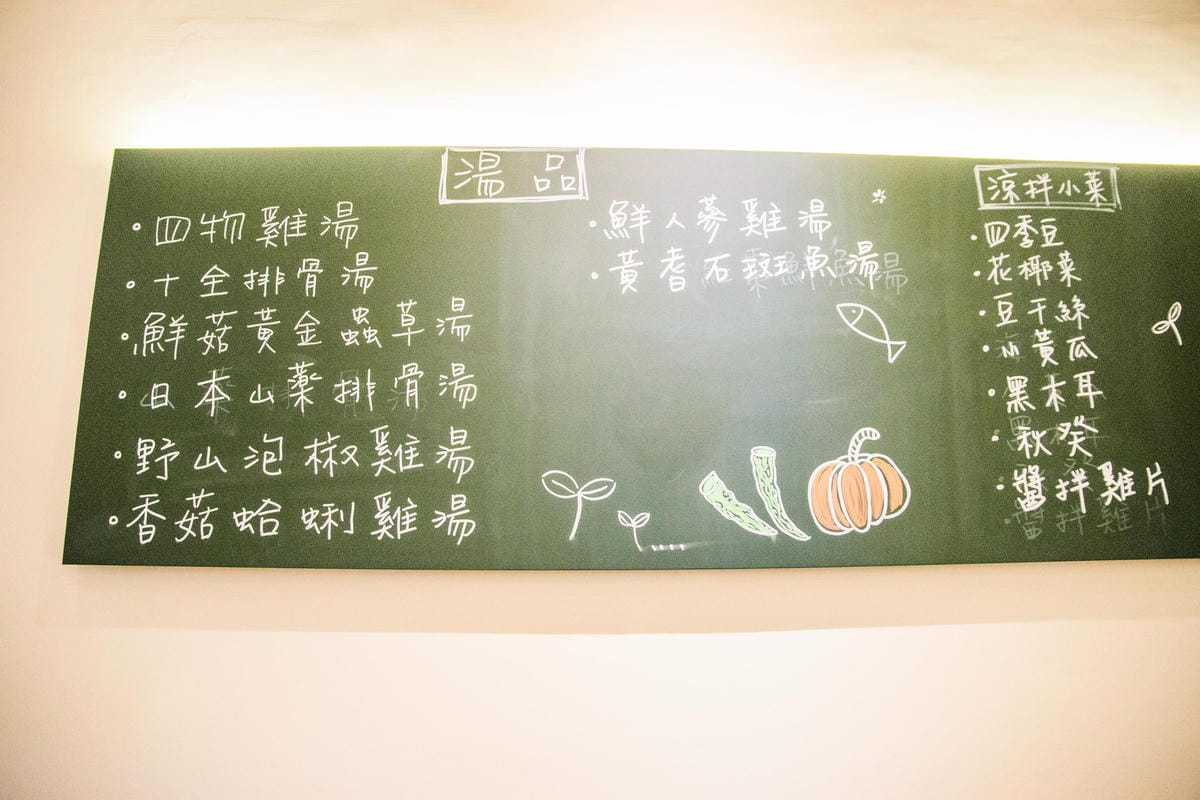 湯品
・四物雞湯
・十全排骨湯
・鮮菇黃金蟲草湯
・日本山藥排骨湯
・野山泡椒雞湯
・香菇蛤蜊雞湯
・鮮人蔘雞湯
・黃耆石斑魚湯
涼拌小菜
・四季豆
・花椰菜
・豆干絲
・小黃瓜
・黑木耳
・秋癸
・醬拌雞片